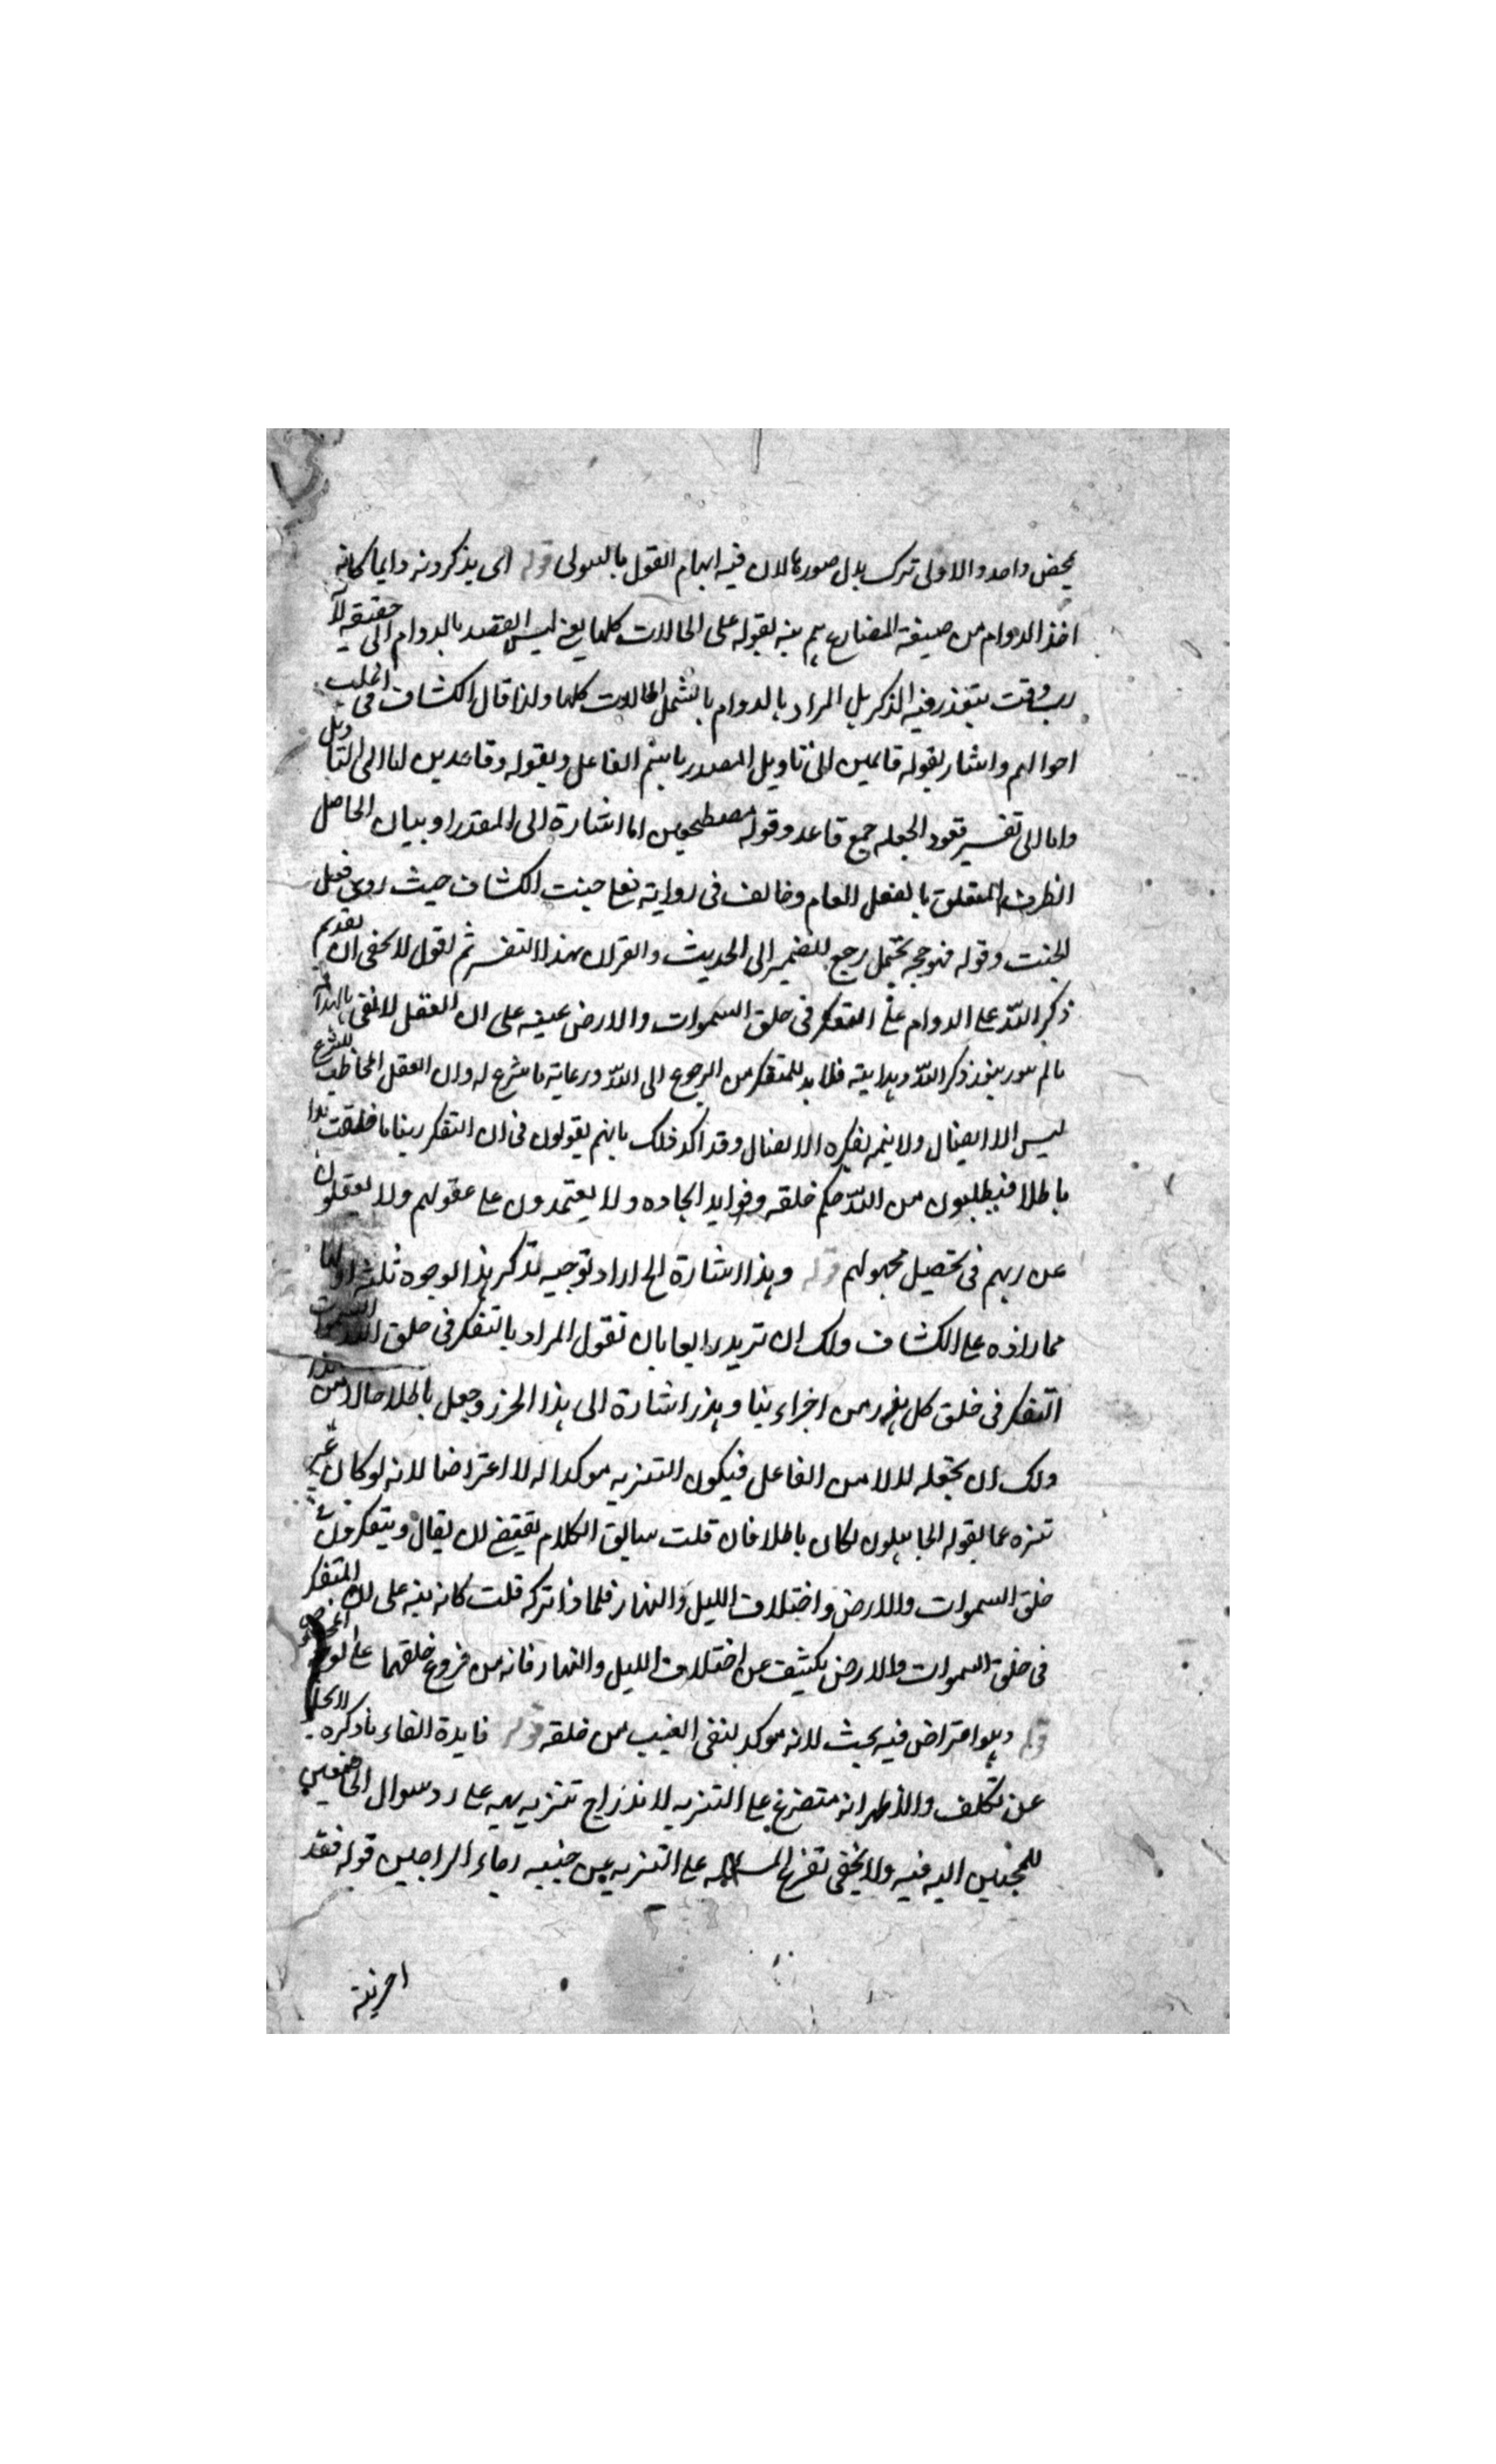 محض واحد والاولى ترك بدل صورها لان فيه ايهام القول بالهيولى قوله اى يذكرونه دايما كانه
اخذ الدوام من صيغة المضارع ثم بينه بقوله على الحالات كلها يعنى ليس القصد بالدوام الى حقيقة لا
رب وقت يتعذر فيه الذكر بل المراد بالدوام ما يشمل الحالات كلها ولذا قال الكشاف فى اغلب
احوالهم واشار بقوله قائمين الى تاويل المصدر باسم الفاعل وبقوله وقاعدين اما الى التاويل
واما الى تفسير قعود الجعله جمع قاعد وقوله مضطجعين اما اشارة الى المقدر او بيان الحاصل
الظرف المتعلق بالفعل العام وخالف فى رواية فعلى جنب الكشاف حيث روى فعلى
الجنب وقوله فهو حجة يحتمل رجع الضمير الى الحديث والقران بهذا التفسير ثم اقول لا يخفى ان تقديم
ذكر الله على الدوام على التفكر فى خلق السموات والارض على ان العقل لا يفى بالهداية
مالم ينور بنور ذكر الله وهدايته فلا بد للمتفكر من الرجوع الى الله ورعاية ما شرع له وان العقل المخالف للشرع
ليس الا الضلال ولا نتيجة لفكره الا الضلال وقد اكد ذلك بانهم يقولون فى ان التفكر ربنا ما خلقت هذا
باطلا فيطلبون من الله حكم خلقه وفوايد ايجاده ولا يعتمدون على عقولهم ولا يغفلون
عن ربهم فى تحصيل مجهولهم قوله وهذا اشارة الخ اراد توجيه تذكر هذا لوجوه ثلثة اولها
مما زاده على الكشاف ولك ان تزيد رابعا بان تقول المراد بالتفكر فى خلق السموات
التفكر فى خلق كل جزء من اجزاء وهذا اشارة الى هذا الجزء وجعل باطلا حالا من هذا
ولك ان تجعله حالا من الفاعل فيكون التنزيه موكدا له لا اعتراضا لانه لو كان غير
تنزه عما يقوله الجاهلون لكان باطلا فان قلت سابق الكلام يقتضى ان يقال ويتفكرون فى
خلق السموات والارض واختلاف الليل والنهار فلماذا تركه قلت كانه نبه على ان المتفكر
فى خلق السموات والارض يكشف عن اختلاف الليل والنهار فانه من فروع خلقهما على الوجه
قوله وهو اعتراض فيه بحث لانه موكد لنفى العيب من خلقه قوله فايدة الفاء ما ذكره لا يخلو
عن تكلف والاظهر انه متفرع على التنزيه لاندراج تنزيهه على رد سوال الخاضعين
الملتجئين اليه فيه ولا يخفى تفرع المسئلة على التنزيه عن خيبة رجاء الراجين قوله فقد
اخزيته